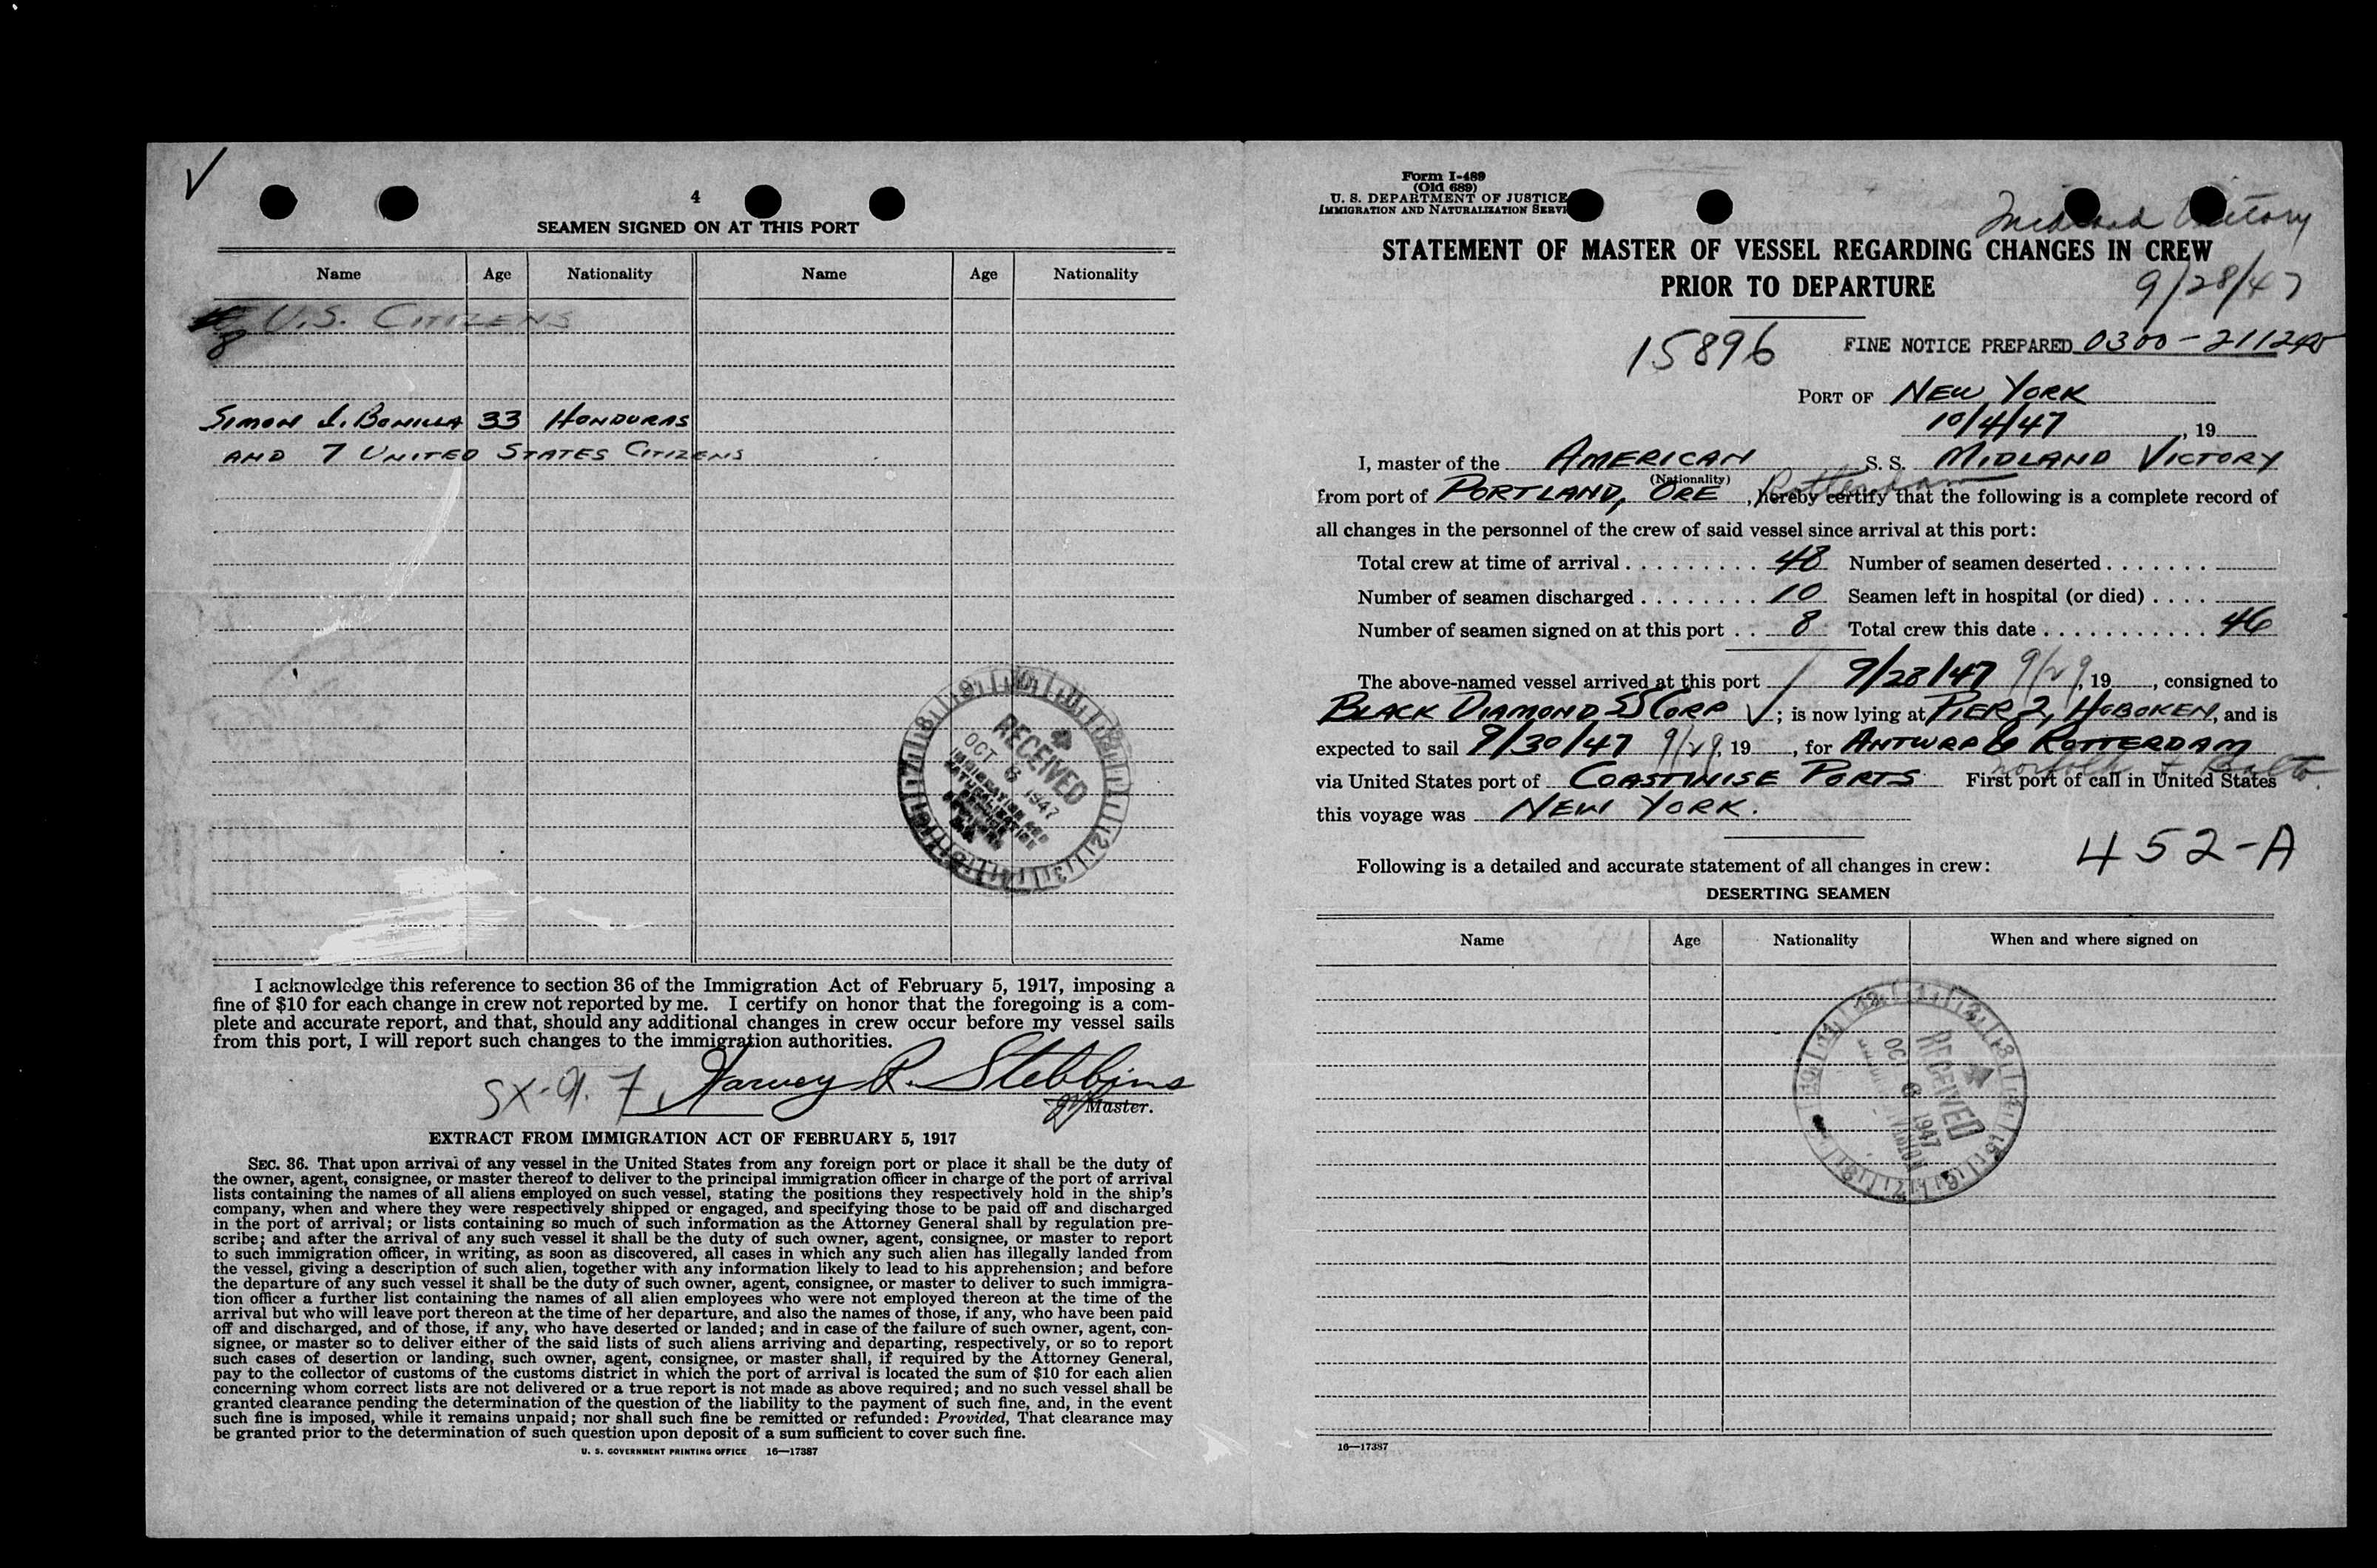 4
SEAMEN SIGNED ON AT THIS PORT
Name Age Nationality Name Age Nationality
U.S. CITIZENS
8
SIMON J. BONILLA 33 HONDURAS
AND 7 UNITED STATES CITIZENS
RECEIVED
OCT 6 1947
I acknowledge this reference to section 36 of the Immigration Act of February 5, 1917, imposing a
fine of $10 for each change in crew not reported by me. I certify on honor that the foregoing is a com-
plete and accurate report, and that, should any additional changes in crew occur before my vessel sails
from this port, I will report such changes to the immigration authorities.
Harvey R. Stebbins
Master.
EXTRACT FROM IMMIGRATION ACT OF FEBRUARY 5, 1917
SEC. 36. That upon arrival of any vessel in the United States from any foreign port or place it shall be the duty of
the owner, agent, consignee, or master thereof to deliver to the principal immigration officer in charge of the port of arrival
lists containing the names of all aliens employed on such vessel, stating the positions they respectively hold in the ship's
company, when and where they were respectively shipped or engaged, and specifying those to be paid off and discharged
in the port of arrival; or lists containing so much of such information as the Attorney General shall by regulation pre-
scribe; and after the arrival of any such vessel it shall be the duty of such owner, agent, consignee, or master to report
to such immigration officer, in writing, as soon as discovered, all cases in which any such alien has illegally landed from
the vessel, giving a description of such alien, together with any information likely to lead to his apprehension; and before
the departure of any such vessel it shall be the duty of such owner, agent, consignee, or master to deliver to such immigra-
tion officer a further list containing the names of all alien employees who were not employed thereon at the time of the
arrival but who will leave port thereon at the time of her departure, and also the names of those, if any, who have been paid
off and discharged, and of those, if any, who have deserted or landed; and in case of the failure of such owner, agent, con-
signee, or master so to deliver either of the said lists of such aliens arriving and departing, respectively, or so to report
such cases of desertion or landing, such owner, agent, consignee, or master shall, if required by the Attorney General,
pay to the collector of customs of the customs district in which the port of arrival is located the sum of $10 for each alien
concerning whom correct lists are not delivered or a true report is not made as above required; and no such vessel shall be
granted clearance pending the determination of the question of the liability to the payment of such fine, and, in the event
such fine is imposed, while it remains unpaid; nor shall such fine be remitted or refunded: Provided, That clearance may
be granted prior to the determination of such question upon deposit of a sum sufficient to cover such fine.
U. S. GOVERNMENT PRINTING OFFICE 16—17387
Form I-489
(Old 689)
U. S. DEPARTMENT OF JUSTICE
IMMIGRATION AND NATURALIZATION SERVI
Midland Victory
STATEMENT OF MASTER OF VESSEL REGARDING CHANGES IN CREW
PRIOR TO DEPARTURE
9/28/47
15896
FINE NOTICE PREPARED 0300-211240
PORT OF NEW YORK
10/4/47, 19
I, master of the AMERICAN S. S. MIDLAND VICTORY
(Nationality)
from port of PORTLAND, ORE Rotterdam, hereby certify that the following is a complete record of
all changes in the personnel of the crew of said vessel since arrival at this port:
Total crew at time of arrival . . . . . . . . . 48 Number of seamen deserted . . . . . . .
Number of seamen discharged . . . . . . . . 10 Seamen left in hospital (or died) . . . .
Number of seamen signed on at this port . . 8 Total crew this date . . . . . . . . . . . 46
The above-named vessel arrived at this port 9/28/47 9/29, 19, consigned to
BLACK DIAMOND SS CORP; is now lying at PIER 2, HOBOKEN, and is
expected to sail 9/30/47 9/29, 19, for ANTWRP & ROTTERDAM
norfolk + Balto
via United States port of COASTWISE PORTS First port of call in United States
this voyage was NEW YORK.
452-A
Following is a detailed and accurate statement of all changes in crew:
DESERTING SEAMEN
Name Age Nationality When and where signed on
RECEIVED
OC 6 1947
16—17387